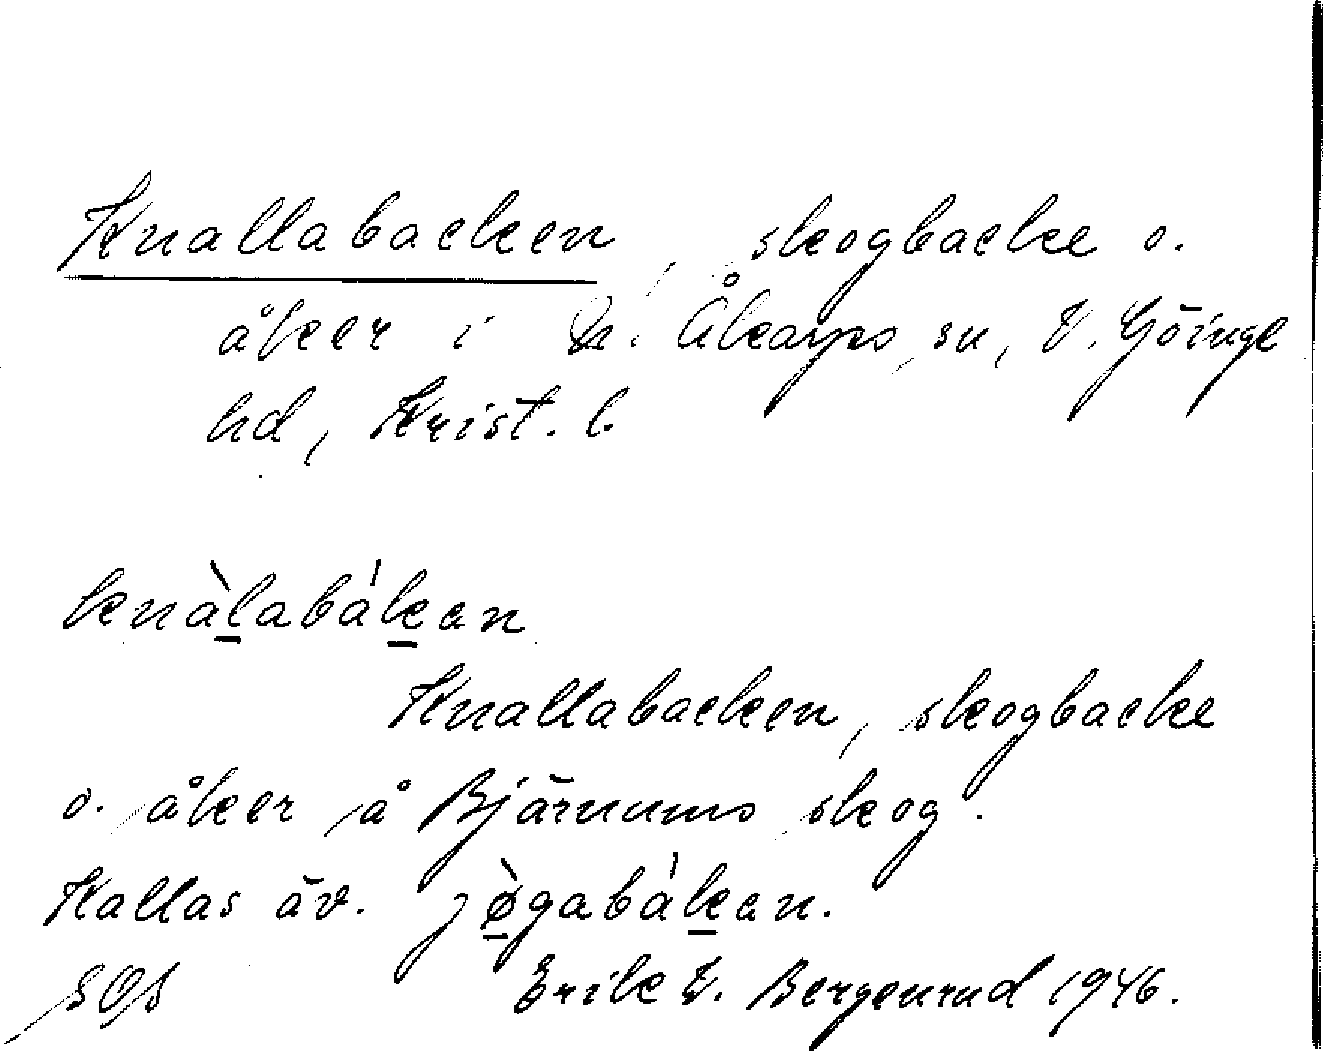 Knallabacken, skogbacke o.
åker i N. Åkarps sn, V. Göinge
hd, Krist. l.
knàl̲abák̲an
Knallabacken, skogbacke
o. åker å Bjärnums skog.
Kallas äv. jø̲̀gabák̲an.
SOS Erik V. Bergenrud 1946.